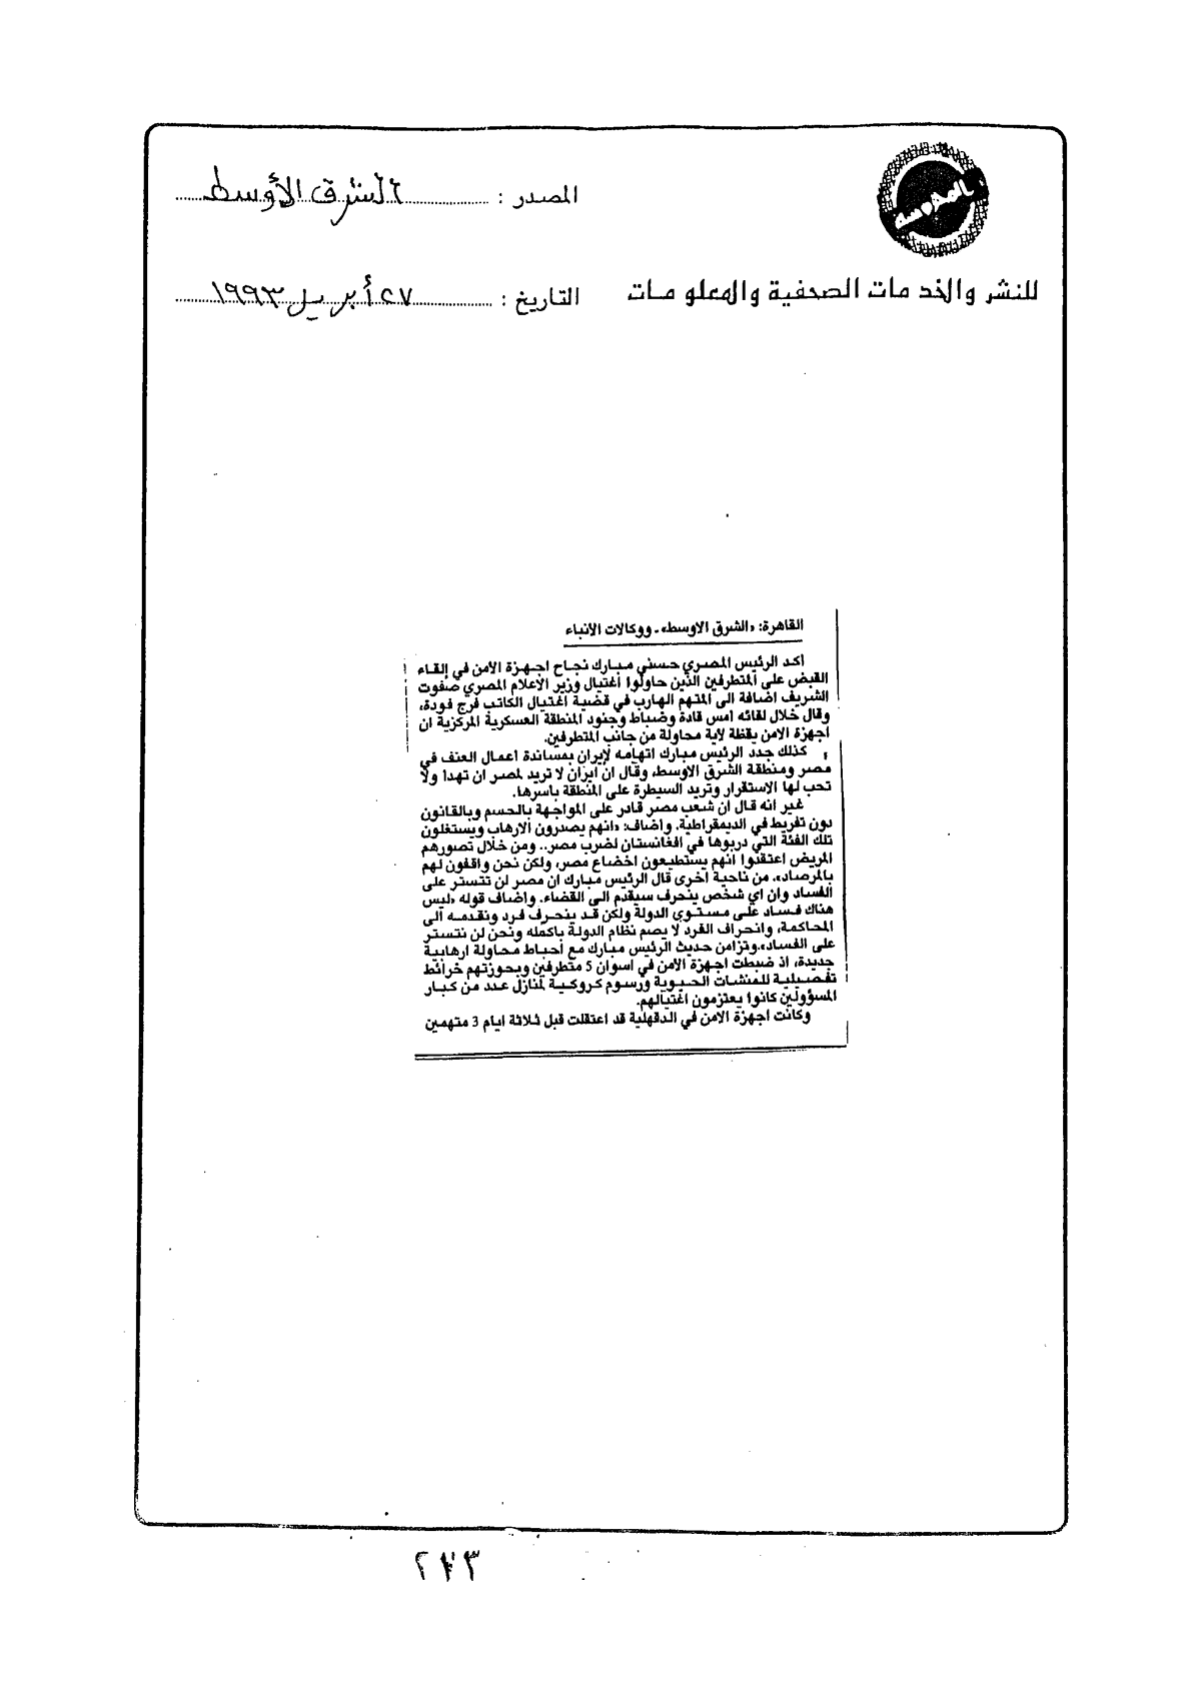 المصدر : الشرق الأوسط
للنشر والخدمات الصحفية والمعلومات
التاريخ : ٢٧ أبريل ١٩٩٣
القاهرة: «الشرق الاوسط» - ووكالات الانباء
اكد الرئيس المصري حسني مبارك نجاح اجهزة الامن في إلقاء
القبض على المتطرفين الذين حاولوا أغتيال وزير الإعلام المصري صفوت
الشريف اضافة الى المتهم الهارب في قضية اغتيال الكاتب فرج فودة،
وقال خلال لقائه امس قادة وضباط وجنود المنطقة العسكرية المركزية ان
اجهزة الامن يقظة لاية محاولة من جانب المتطرفين.
كذلك جدد الرئيس مبارك اتهامه لإيران بمساندة اعمال العنف في
مصر ومنطقة الشرق الاوسط، وقال ان ايران لا تريد لمصر ان تهدأ ولا
تحب لها الاستقرار وتريد السيطرة على المنطقة باسرها.
غير انه قال ان شعب مصر قادر على المواجهة بالحسم وبالقانون
دون تفريط في الديمقراطية. واضاف: «انهم يصدرون الارهاب ويستغلون
تلك الفئة التي دربوها في افغانستان لضرب مصر.. ومن خلال تصورهم
المريض اعتقدوا انهم يستطيعون اخضاع مصر، ولكن نحن واقفون لهم
بالمرصاد». من ناحية اخرى قال الرئيس مبارك ان مصر لن تتستر على
الفساد وان اي شخص ينحرف سيقدم الى القضاء. واضاف قوله «ليس
هناك فساد على مستوى الدولة ولكن قد ينحرف فرد ونقدمه الى
المحاكمة، وانحراف الفرد لا يصم نظام الدولة باكمله ونحن لن نتستر
على الفساد». وتزامن حديث الرئيس مبارك مع احباط محاولة ارهابية
جديدة، اذ ضبطت اجهزة الامن في اسوان 5 متطرفين وبحوزتهم خرائط
تفصيلية للمنشات الحيوية ورسوم كروكية لمنازل عدد من كبار
المسؤولين كانوا يعتزمون اغتيالهم.
وكانت اجهزة الامن في الدقهلية قد اعتقلت قبل ثلاثة ايام 3 متهمين